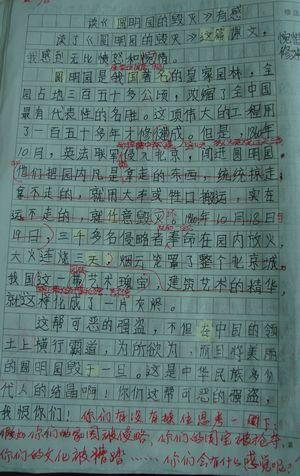 读《圆明园的毁灭》有感
读了《圆明园的毁灭》这篇课文，
我感到无比愤怒和惋惜。
圆明园是我国著名的皇家园林，全
园占地三百五十多公顷，
最有代表性的名胜。这项伟大的工程用
了一百五十多年才修建成。但是，1860年
10月，英法联军侵入北京，闯进圆明园，
他们把园内凡是拿走的东西，统统掠走，
拿不走的，就用大车或牲口搬运，实在
运不走的，就任意毁灭。1860年10月18日
19日，三千多名侵略者奉命在园内放火，
大火连烧三天，烟云笼罩了整个北京城
我国这一 艺术瑰宝，建筑艺术的精华，
就这样化成了一片灰烬。
这帮可恶的强盗，不但在中国的领
土上横行霸道，为所欲为，而且将美丽
的圆明园毁于一旦。这是中华民族多少
代人的结晶啊！你们这帮可恶的强盗，
我恨你们！你们有没有换位思考一下：
假如你们的家园被侵略，你们的国宝被抢走，
你们的文化被糟蹋……你们会有什么感觉呢？